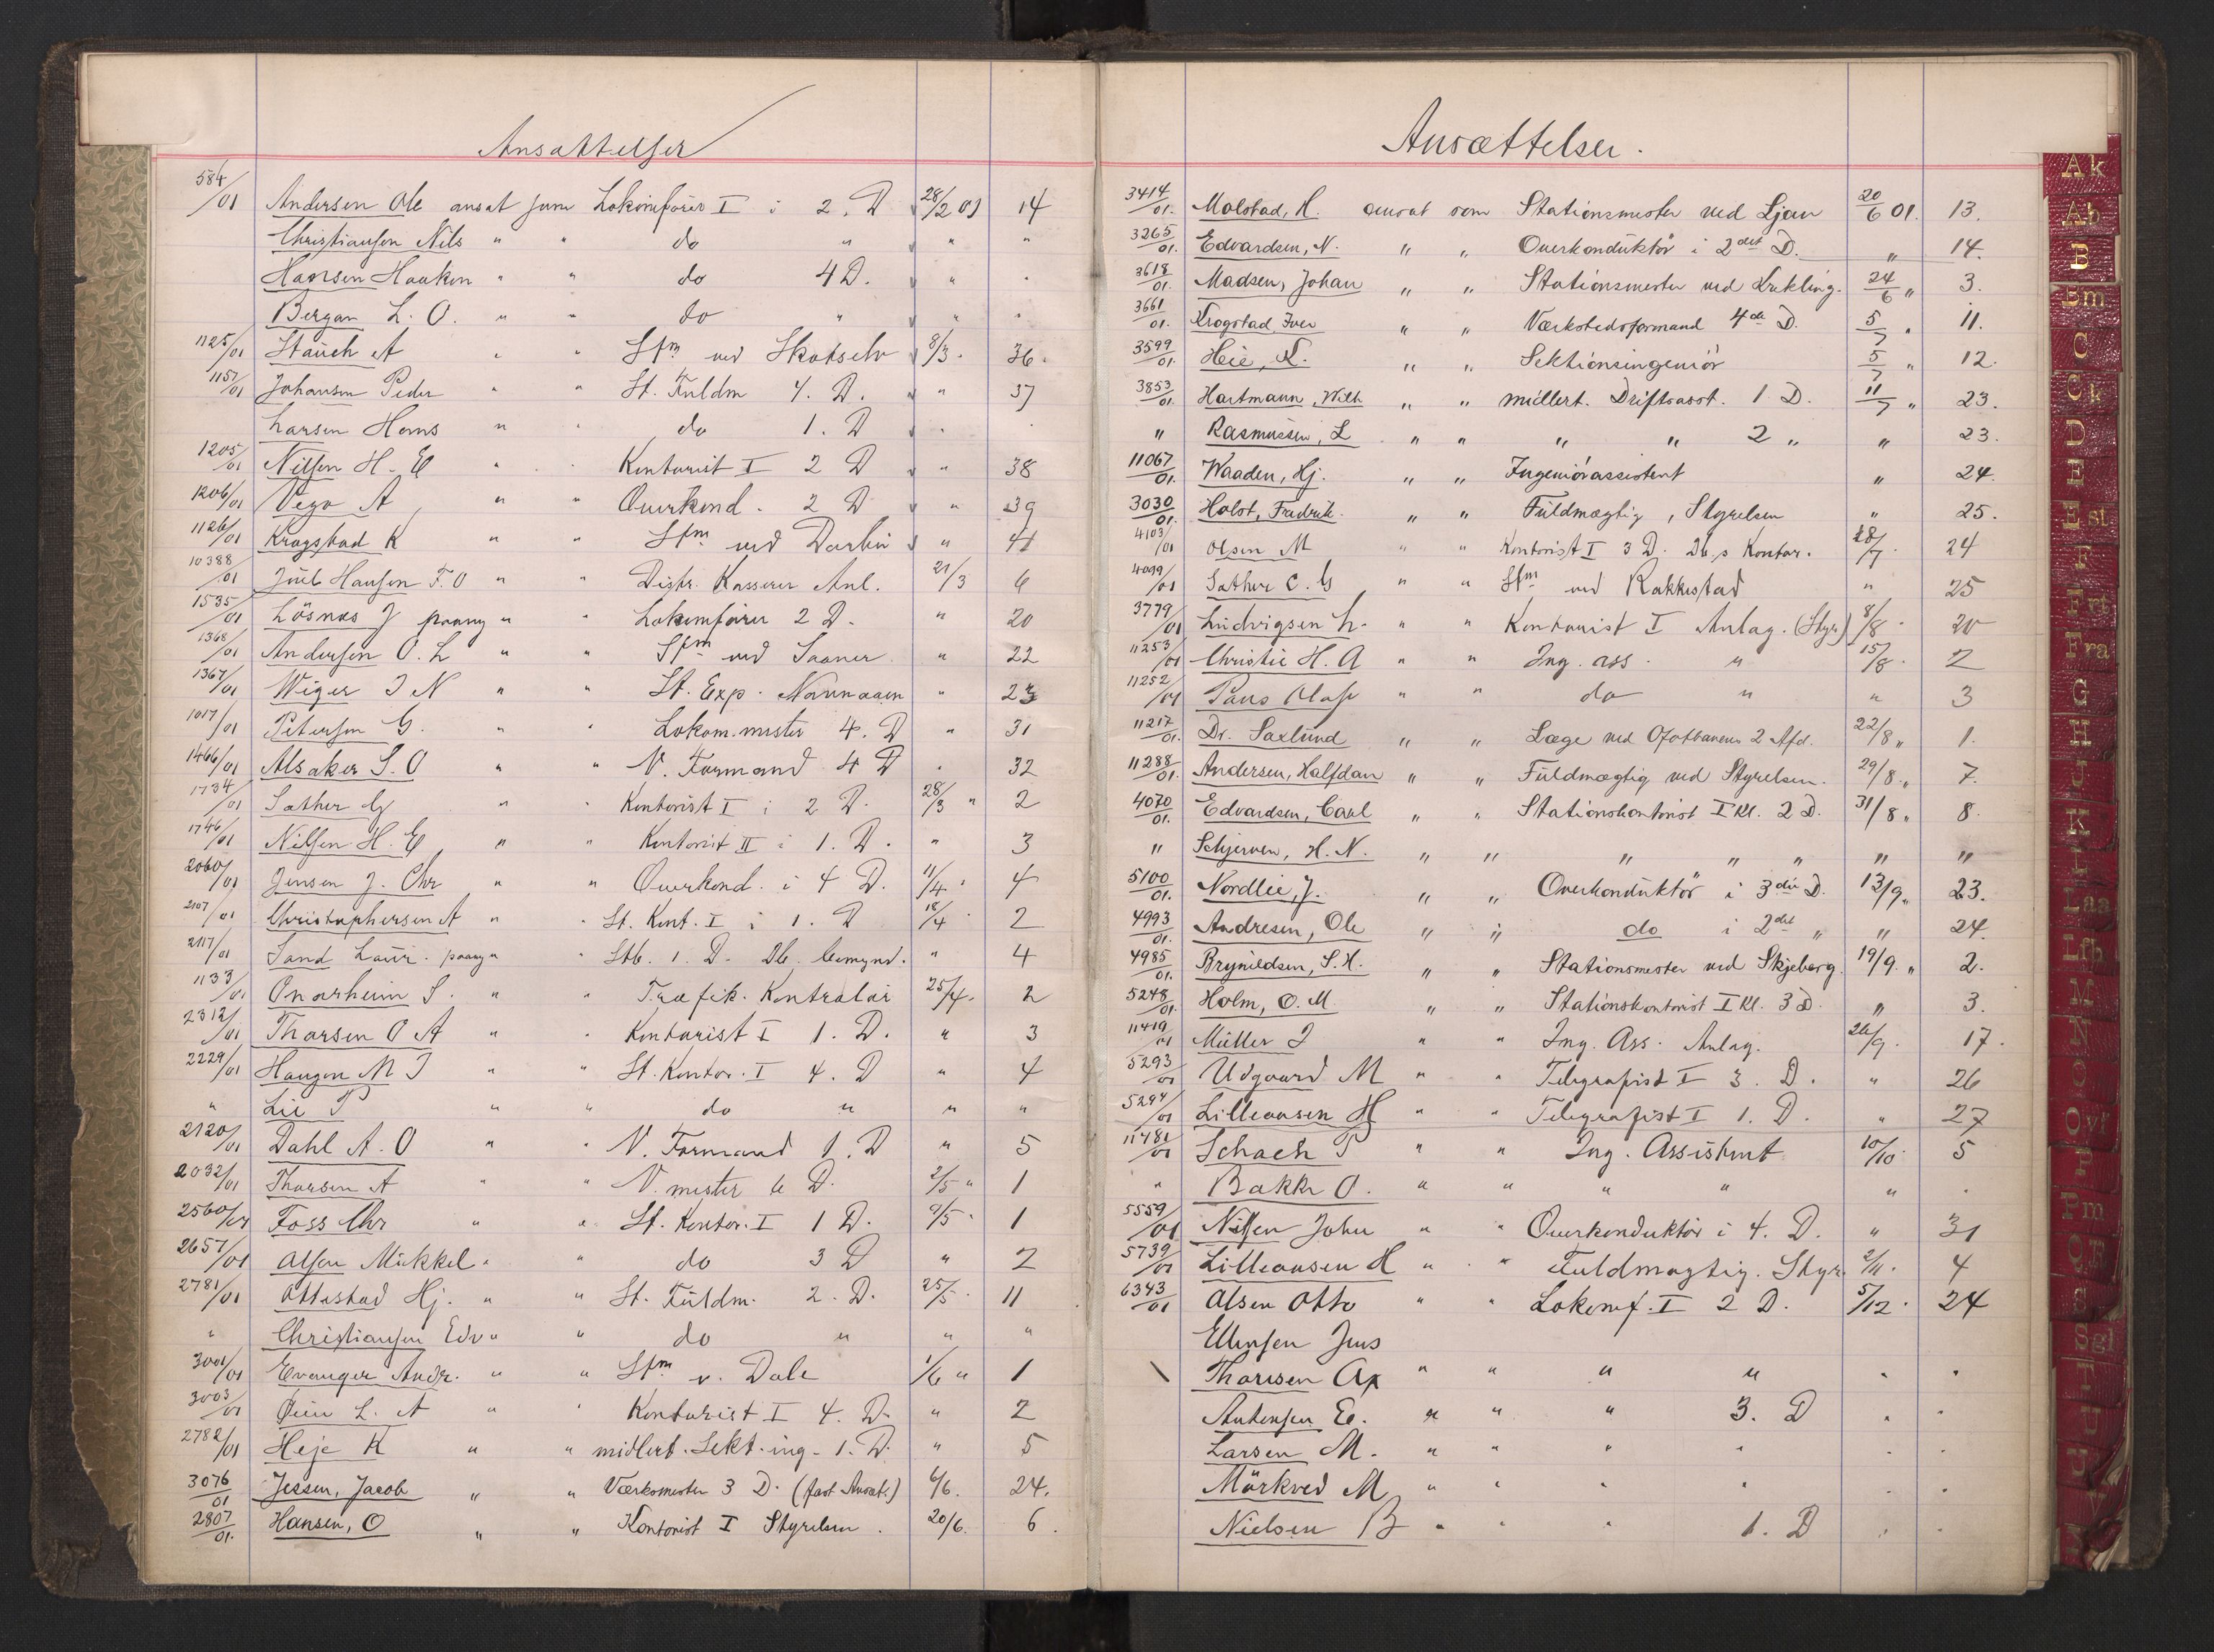 Ansættelser
584/01 Andersen Ole ansat som Lokomofører I i 2. D 28/2 01 14
Christiansen Nils " " do " " "
Hansen Haakon " " do 4 D. " "
Bergan L. O. " " do " " "
1125/01 Stauch A " " Stm ved Skotselv 8/3 36
1157/01 Johansen Peder " " St. Fuldm 4. D. " 37
Larsen Hans " " do 1. D " "
1205/01 Nilsen H. E " " Kontorist I 2 D " 38
1206/01 Vego A " " Overkond. 2 D " 39
1126/01 Krogstad K " " Stm ved Darbu " 41
10388/01 Juul Hansen F. O " " Distr. Kasserer Anl. 21/3 6
1535/01 Lösnæs J paany " " Lokomfører 2 D. " 20
1368/01 Andersen O. L " " Stm ved Saaner " 22
1367/01 Wiger J N " " St. Exp. " 23
1017/01 Petersen G. " " Lokom.mester 4. D " 31
1466/01 Alsaker S. O " " V. Formand 4 D " 32
1734/01 Sæther G " " Kontorist I i 2 D. 28/3 " 2
1746/01 Nilsen H. E " " Kontorist II i 1. D. " 3
2060/01 Jensen J. Chr " " Overkond. i 4 D. 11/4 " 4
2107/01 Christophersen A " " St. Kont. I i 1. D 18/4 2
2117/01 Sand Laur. paany " " Stb. 1. D. " 4
1133/01 Onarheim S. " " Trafik. Kontrolør 25/4. 2
2312/01 Thorsen O A " " Kontorist I 1. D. " 3
2229/01 Haugen M J " " St. Kontor. I 4. D " 4
" Lie P " " do " " "
2120/01 Dahl A. O " " V. Formand 1. D " 5
2032/01 Thorsen A " " V. mester 6 D. 2/5 " 1
2560/01 Foss Chr " " St. Kontor. I 1 D. 9/5 " 1
2657/01 Olsen Mikkel " " do 3 D " 2
2781/01 Ottestad Hj. " " St. Fuldm. 2. D. 25/5 11
" Christiansen Edv " " do " " "
3001/01 Evanger Andr. " " Stm v. Dale 1/6 " 1
3003/01 Øien L. A " " Kontorist I 4. D. " 2
2782/01 Heje K " " midlert. Sekt. ing. 1. D. " 5
3076/01 Jessen, Jacob " " Værksmester 3 D. (fast Ansat.) 6/6. 24.
2807/01. Hansen, O " " Kontorist I Styrelsen. 20/6. 6.
Ansættelser.
3414/01. Molstad, H. ansat som Stationsmester ved Ljan 20/6 01. 13.
3265/01. Edvardsen, N. " " Overkonduktör i 2det D. " 14.
3618/01. Madsen, Johan " " Stationsmester ved Lukling. 24/6 " 3.
3661/01. Krogstad Iver " " Værkstedsformand 4de D. 5/7 " 11.
3599/01. Heie, K. " " Sektionsingeniör 5/7 " 12.
3853/01. Hartmann, Wilh " " midlert. Driftsasst. 1 D. 11/7 " 23.
" Rasmussen, L " " " " 2 " " 23.
11067/01. Waaden, Hj. " " Ingeniörassistent " 24.
3030/01. Holst, Fredrik. " " Fuldmægtig, Styrelsen " 25.
4103/01 Olsen M " " Kontorist I 3 D. Db.s Kontor. 28/7. 24
4099/01 Sæther C. G " " Stm ved Rakkestad " 25
3779/01 Ludvigsen L. " " Kontorist I Anlæg. (Styr) 8/8 20
11253/01 Christie H. A " " Ing. ass. " 15/8. 2
11252/01 Paus Olaf " " do " " 3
11217/01. Dr. Saxlund " " Læge ved Ofotbanens 2 Afd. 22/8 " 1.
11288/01. Andersen, Halfdan " " Fuldmægtig ved Styrelsen. 29/8 " 7.
4070/01. Edvardsen, Carl " " Stationskontorist I Kl. 2 D. 31/8 " 8.
" Schjerven, H. N. " " " " " " "
5100/01. Nordlie, J. " " Overkonduktör i 3die D. 12/9 " 23.
4993/01. Andresen, Ole " " do i 2det " " 24.
4985/01. Brynildsen, S. H. " " Stationsmester ved Skjeberg. 19/9. " 2.
5248/01. Holm, O. M. " " Stationskontorist I Kl. 3 D. " 3.
11419/01 Müller J " " Ing. Ass. Anlæg. 26/9. 17.
5293/01 Udgaard M " " Telegrafist I 3. D. " 26
5294/01 Lilleaasen H " " Telegrafist I 1. D. " 27
11481/01 Schach P " " Ing. Assistent 10/10 5
" Bakke O. " " " " " "
5559/01 Nilsen John " " Overkonduktör i 4. D. " 31
5739/01 Lilleaasen H " " Fuldmægtig. Styr. 2/11. 4
6343/01 Olsen Otto " " Lokomf. I 2 D. 5/12. 24
Ellensen Jens
Thoresen Ax " " " " " "
Antonsen E. " " " 3. D " "
Larsen M. " " " " " "
Mörkved M " " " " " "
Nielsen B " " " 1. D " "
Ak
Ab
B
Bm
C
Ck
D
E
Est
F
Frt
Fra
G
H
IJ
K
L
Laa
Lfb
M
N
O
Ovf
P
Pm
S
Sgl
T
U
V